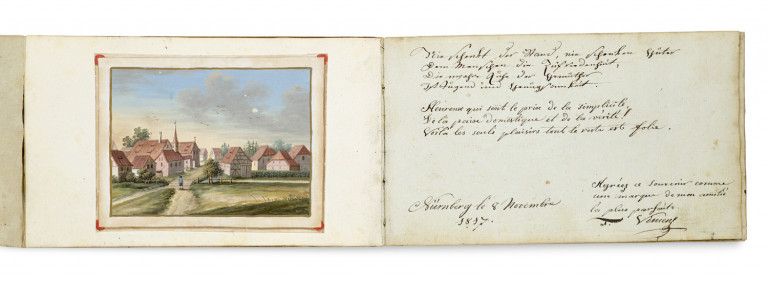 Nie schenkt der Stand, nie schenken Güter
Dem Menschen die Zufriedenheit,
Die wahre Ruhe der Gemüther
Ist Tugend und Genügsamkeit.
Heureux qui sent le prix de la simplicité,
De la paix domestique et de la vérité!
Voilà les seuls plaisirs tout le reste est folie.
Agréez ce souvenir comme
une marque de mon amitié
la plus parfaite
Nürnberg le 8 Novembre
1817.